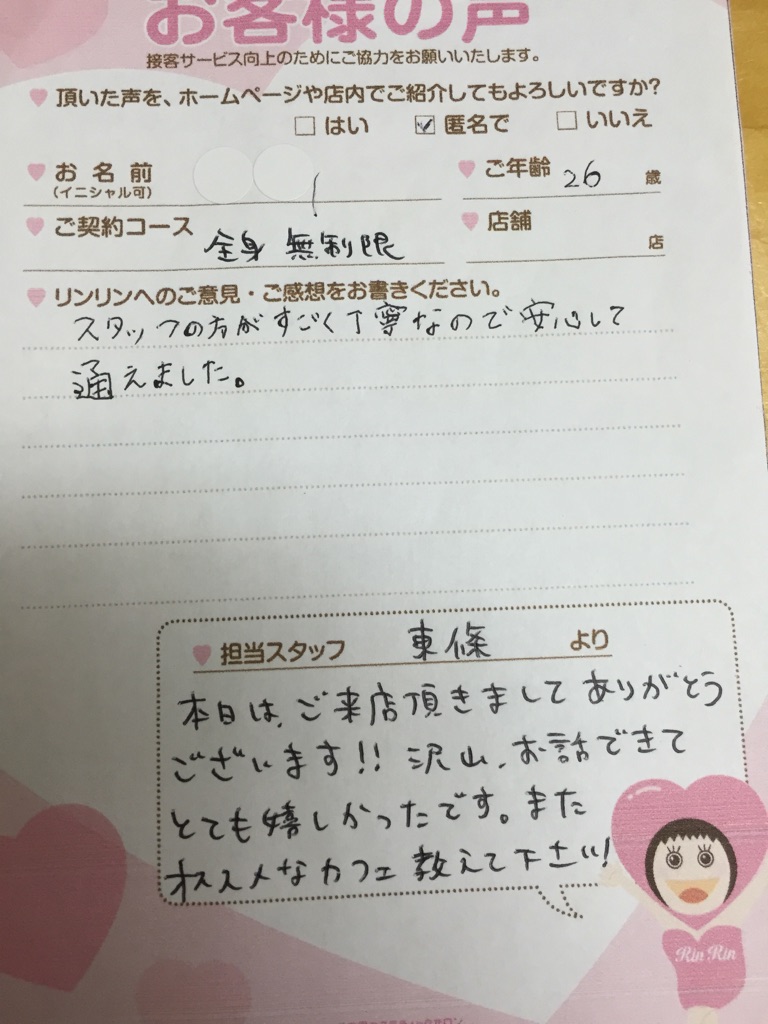 お客様の声
接客サービス向上のためにご協力をお願いいたします。
頂いた声を、ホームページや店内でご紹介してもよろしいですか?
はい 匿名で いいえ
お名前
(イニシャル可)
ご年齢 26 歳
ご契約コース 全身 無制限
店舗 店
リンリンへのご意見・ご感想をお書きください。
スタッフの方がすごく丁寧なので安心して
通えました。
担当スタッフ 東條 より
本日は、ご来店頂きまして ありがとう
ございます!! 沢山、お話できて
とても嬉しかったです。また
オススメなカフェ教えて下さい!
Rin Rin